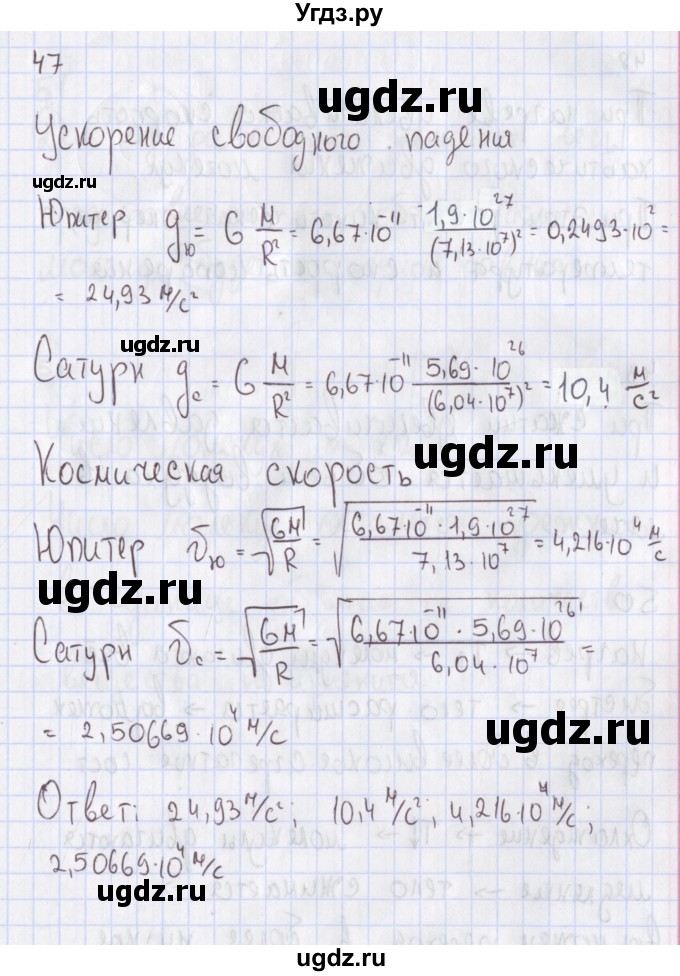 Угдз.ру
47
ugdz.ru
Ускорение свободного падения
ugdz.ru
Юпитер g_ю = G M/R² = 6,67·10⁻¹¹ 1,9·10²⁷/(7,13·10⁷)² = 0,2493·10² =
= 24,93 м/с²
ugdz.ru
ugdz.ru
Сатурн g_с = G M/R² = 6,67·10⁻¹¹ 5,69·10²⁶/(6,04·10⁷)² = 10,4 м/с²
Космическая скорость
ugdz.ru
Юпитер v_ю = √(GM/R) = √(6,67·10⁻¹¹·1,9·10²⁷/7,13·10⁷) = 4,216·10⁴ м/с
ugdz.ru
ugdz.ru
Сатурн v_с = √(GM/R) = √(6,67·10⁻¹¹·5,69·10²⁶/6,04·10⁷) =
= 2,50669·10⁴ м/с
ugdz.ru
Ответ: 24,93 м/с²; 10,4 м/с²; 4,216·10⁴ м/с;
2,50669·10⁴ м/с
ugdz.ru
ugdz.ru